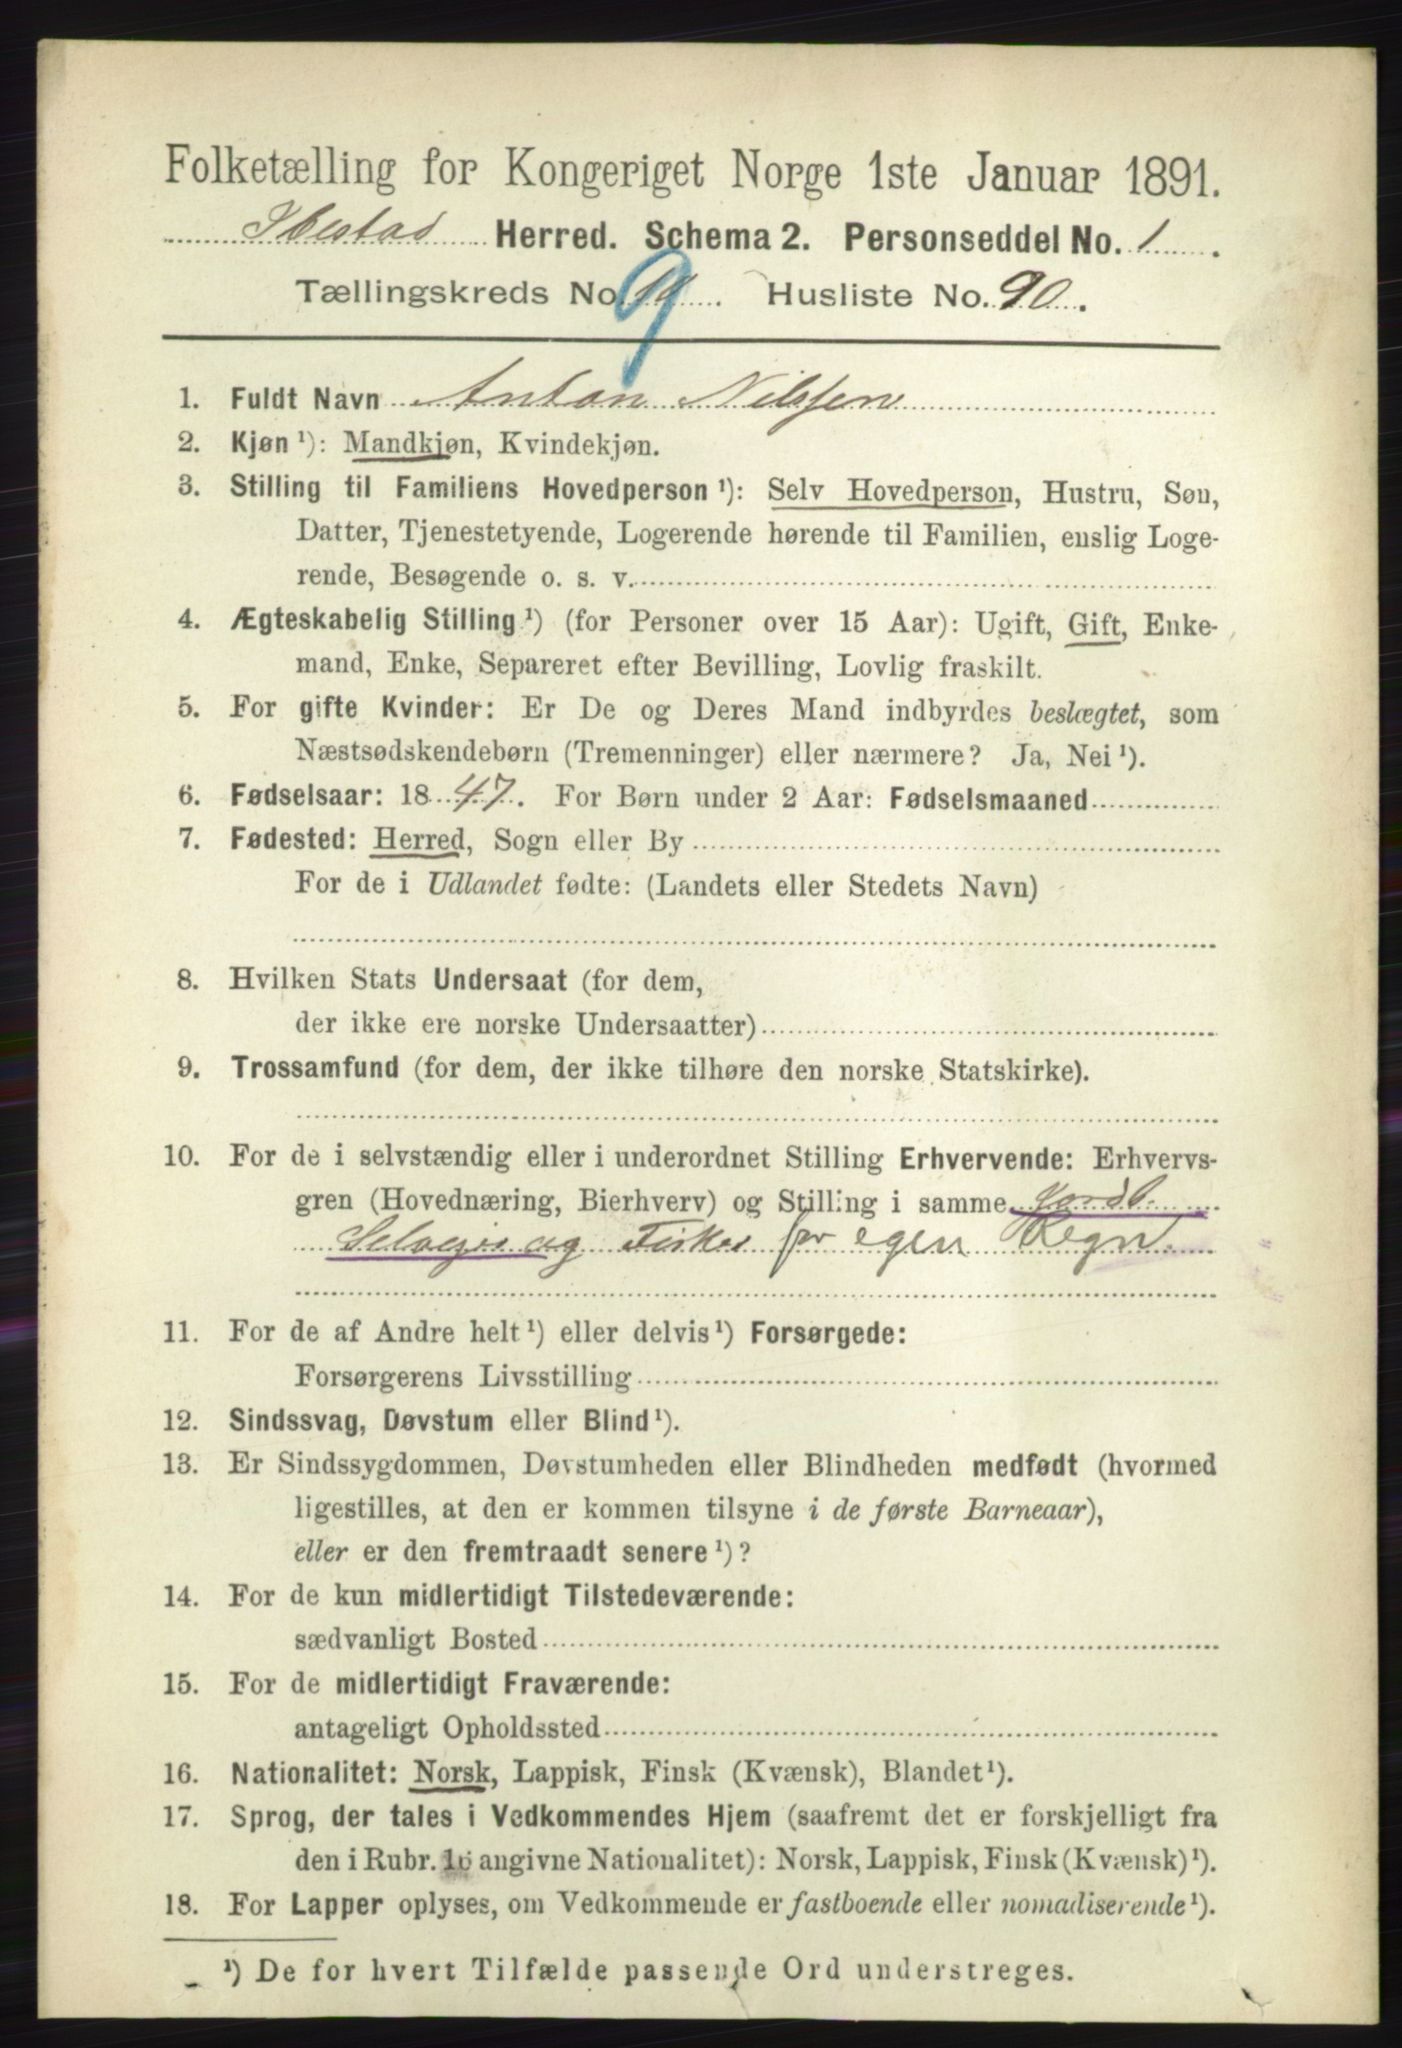 Folketælling for Kongeriget Norge 1ste Januar 1891.
Ibestad Herred. Schema 2. Personseddel No. 1.
Tællingskreds No. 9. Husliste No. 90.
1. Fuldt Navn Anton Nilssen
2. Kjøn ¹): Mandkjøn, Kvindekjøn.
3. Stilling til Familiens Hovedperson ¹): Selv Hovedperson, Hustru, Søn,
Datter, Tjenestetyende, Logerende hørende til Familien, enslig Loge-
rende, Besøgende o. s. v.
4. Ægteskabelig Stilling ¹) (for Personer over 15 Aar): Ugift, Gift, Enke-
mand, Enke, Separeret efter Bevilling, Lovlig fraskilt.
5. For gifte Kvinder: Er De og Deres Mand indbyrdes beslægtet, som
Næstsødskendebørn (Tremenninger) eller nærmere? Ja, Nei ¹).
6. Fødselsaar: 1847. For Børn under 2 Aar: Fødselsmaaned
7. Fødested: Herred, Sogn eller By
For de i Udlandet fødte: (Landets eller Stedets Navn)
8. Hvilken Stats Undersaat (for dem,
der ikke ere norske Undersaatter)
9. Trossamfund (for dem, der ikke tilhøre den norske Statskirke).
10. For de i selvstændig eller i underordnet Stilling Erhvervende: Erhvervs-
gren (Hovednæring, Bierhverv) og Stilling i samme Jordb.
Selveier og Fisker for egen Regn.
11. For de af Andre helt ¹) eller delvis ¹) Forsørgede:
Forsørgerens Livsstilling
12. Sindssvag, Døvstum eller Blind ¹).
13. Er Sindssygdommen, Døvstumheden eller Blindheden medfødt (hvormed
ligestilles, at den er kommen tilsyne i de første Barneaar),
eller er den fremtraadt senere ¹)?
14. For de kun midlertidigt Tilstedeværende:
sædvanligt Bosted
15. For de midlertidigt Fraværende:
antageligt Opholdssted
16. Nationalitet: Norsk, Lappisk, Finsk (Kvænsk), Blandet ¹).
17. Sprog, der tales i Vedkommendes Hjem (saafremt det er forskjelligt fra
den i Rubr. 16 angivne Nationalitet): Norsk, Lappisk, Finsk (Kvænsk) ¹).
18. For Lapper oplyses, om Vedkommende er fastboende eller nomadiserende ¹).
¹) De for hvert Tilfælde passende Ord understreges.